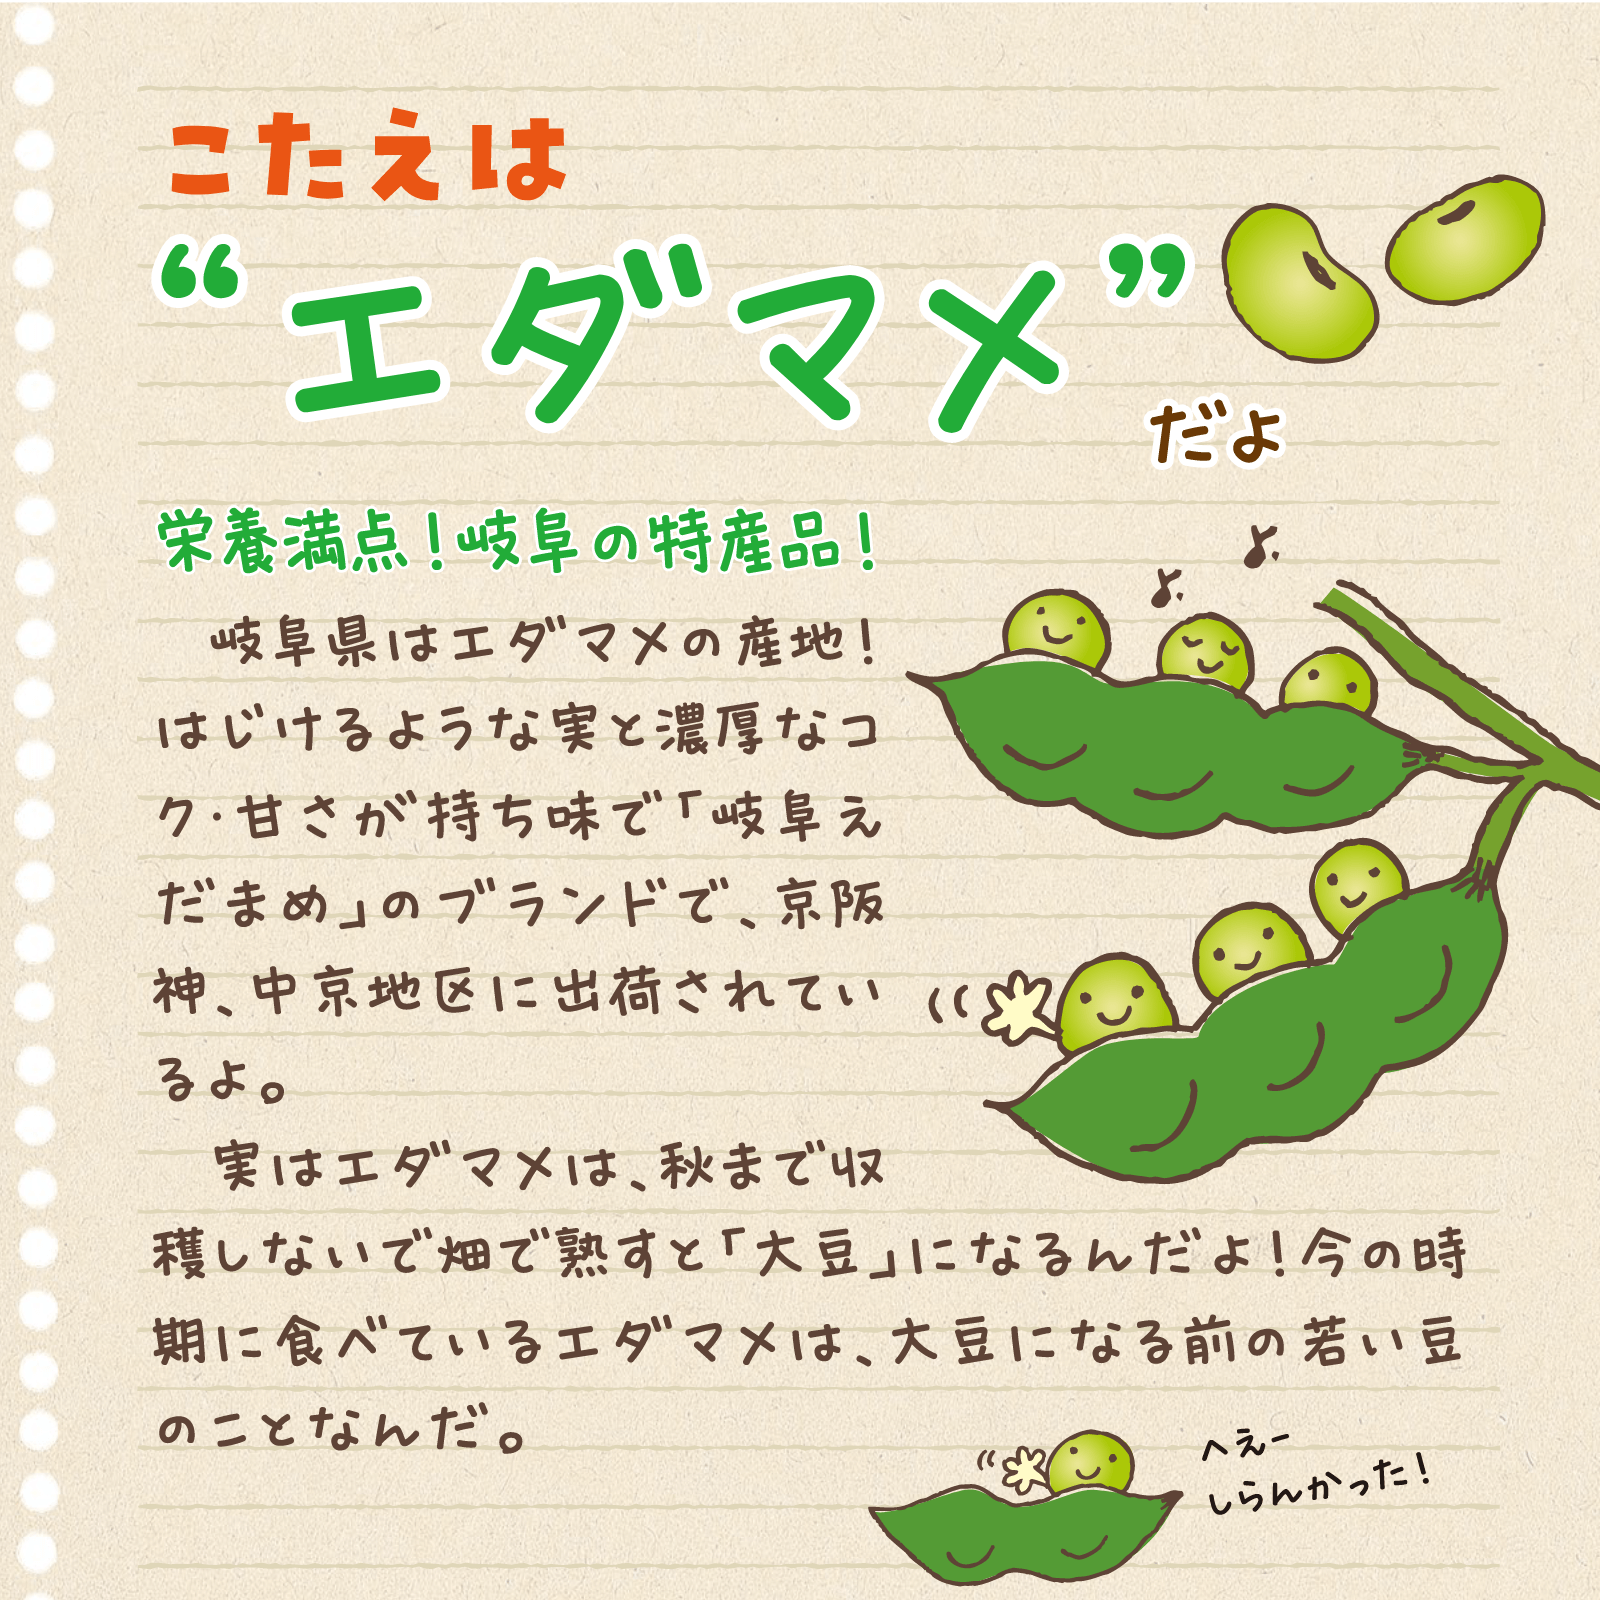 こたえは
“エダマメ”
だよ
栄養満点！岐阜の特産品！
　岐阜県はエダマメの産地！
はじけるような実と濃厚なコ
ク・甘さが持ち味で「岐阜え
だまめ」のブランドで、京阪
神、中京地区に出荷されてい
るよ。
　実はエダマメは、秋まで収
穫しないで畑で熟すと「大豆」になるんだよ！今の時
期に食べているエダマメは、大豆になる前の若い豆
のことなんだ。
へえー
しらんかった！